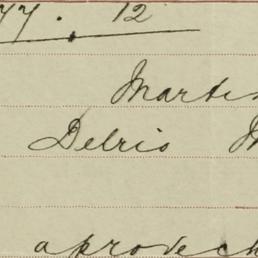 77. 12
Martin
Delrio M
aprovech